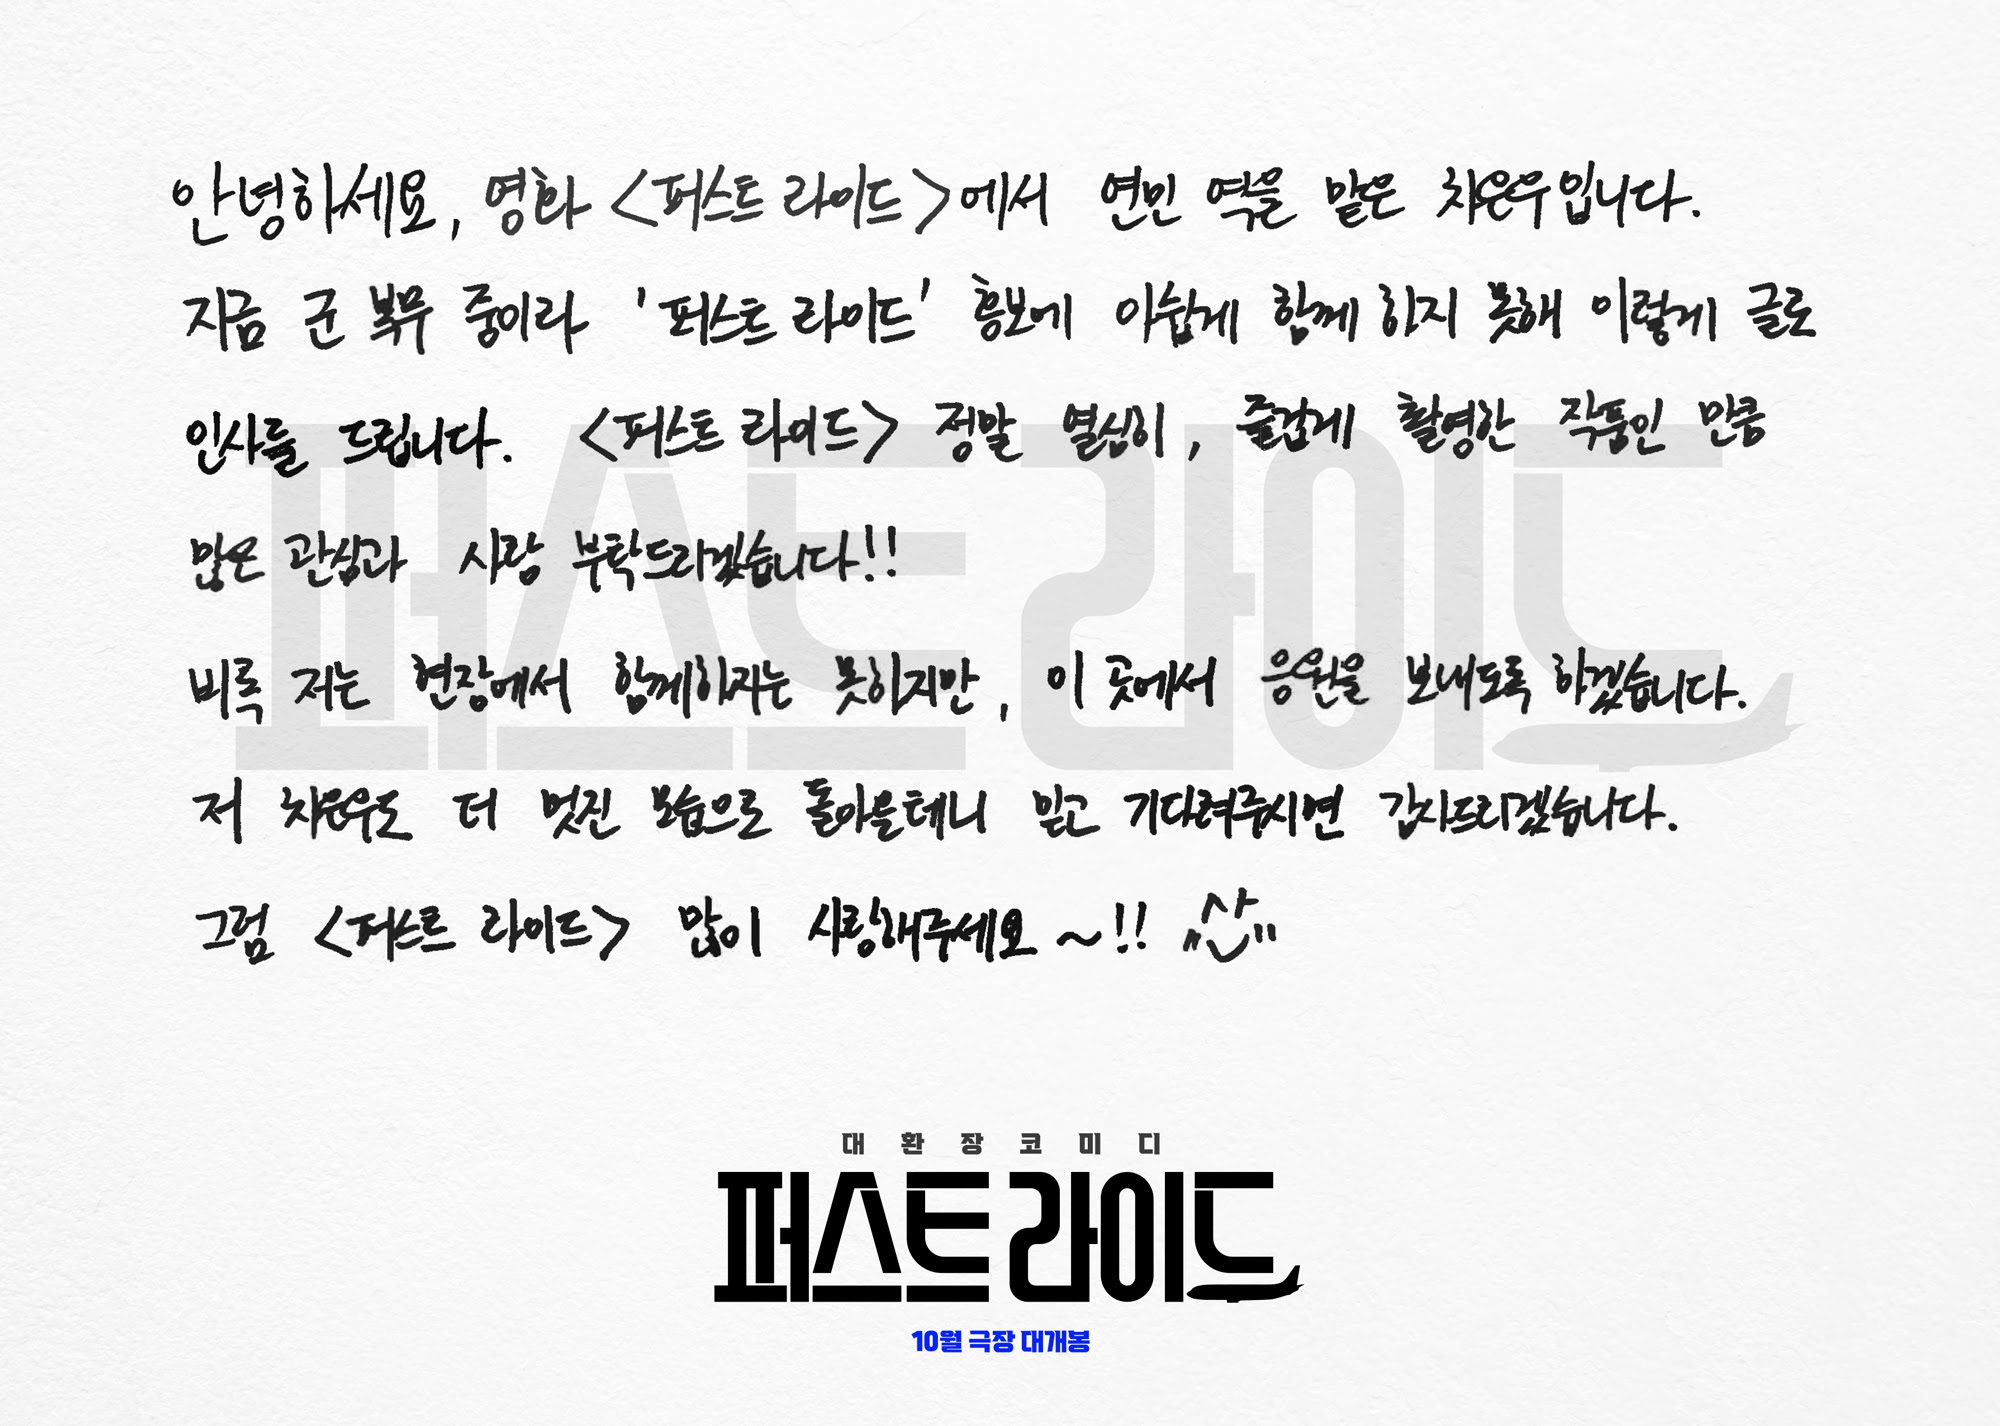 안녕하세요, 영화 <퍼스트 라이드>에서 연민 역을 맡은 차은우입니다.
지금 군 복무 중이라 '퍼스트 라이드' 홍보에 아쉽게 함께 하지 못해 이렇게 글로
인사를 드립니다. <퍼스트 라이드> 정말 열심히, 즐겁게 촬영한 작품인 만큼
많은 관심과 사랑 부탁드리겠습니다!!
비록 저는 현장에서 함께하지는 못하지만, 이 곳에서 응원을 보내도록 하겠습니다.
저 차은우도 더 멋진 모습으로 돌아올테니 믿고 기다려주시면 감사드리겠습니다.
그럼 <퍼스트 라이드> 많이 사랑해주세요~!! "^^"
퍼스트 라이드
대환장코미디
퍼스트 라이드
10월 극장 대개봉